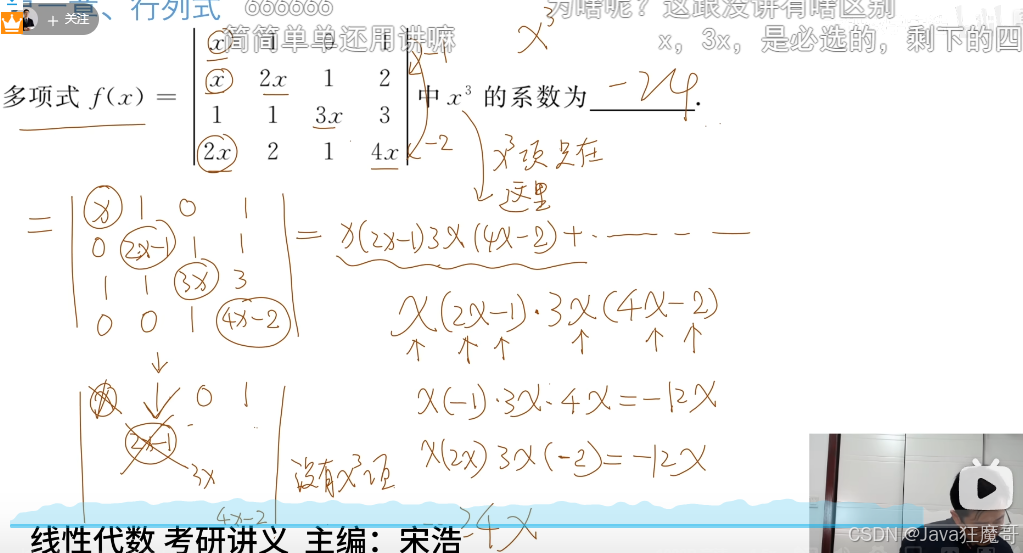 第一章、行列式 666666 为啥呢？这跟没讲有啥区别
+ 关注 简简单单还用讲嘛 x，3x，是必选的，剩下的四
x³
x 1 0 1
x 2x 1 2
1 1 3x 3
2x 2 1 4x
多项式 f(x) = 中 x³ 的系数为 -24 .
x-1
x-2
x³项只在
这里
= x 1 0 1
0 2x-1 1 1
1 1 3x 3
0 0 1 4x-2
= x(2x-1)3x(4x-2)+·—— - —
x(2x-1)·3x(4x-2)
↑ ↑ ↑ ↑ ↑ ↑
x(-1)·3x·4x=-12x
x(2x)3x(-2)=-12x
-24x
↓
x 0 1
2x-1
3x
4x-2
没有x³项
线性代数 考研讲义 主编：宋浩
CSDN @Java狂魔哥